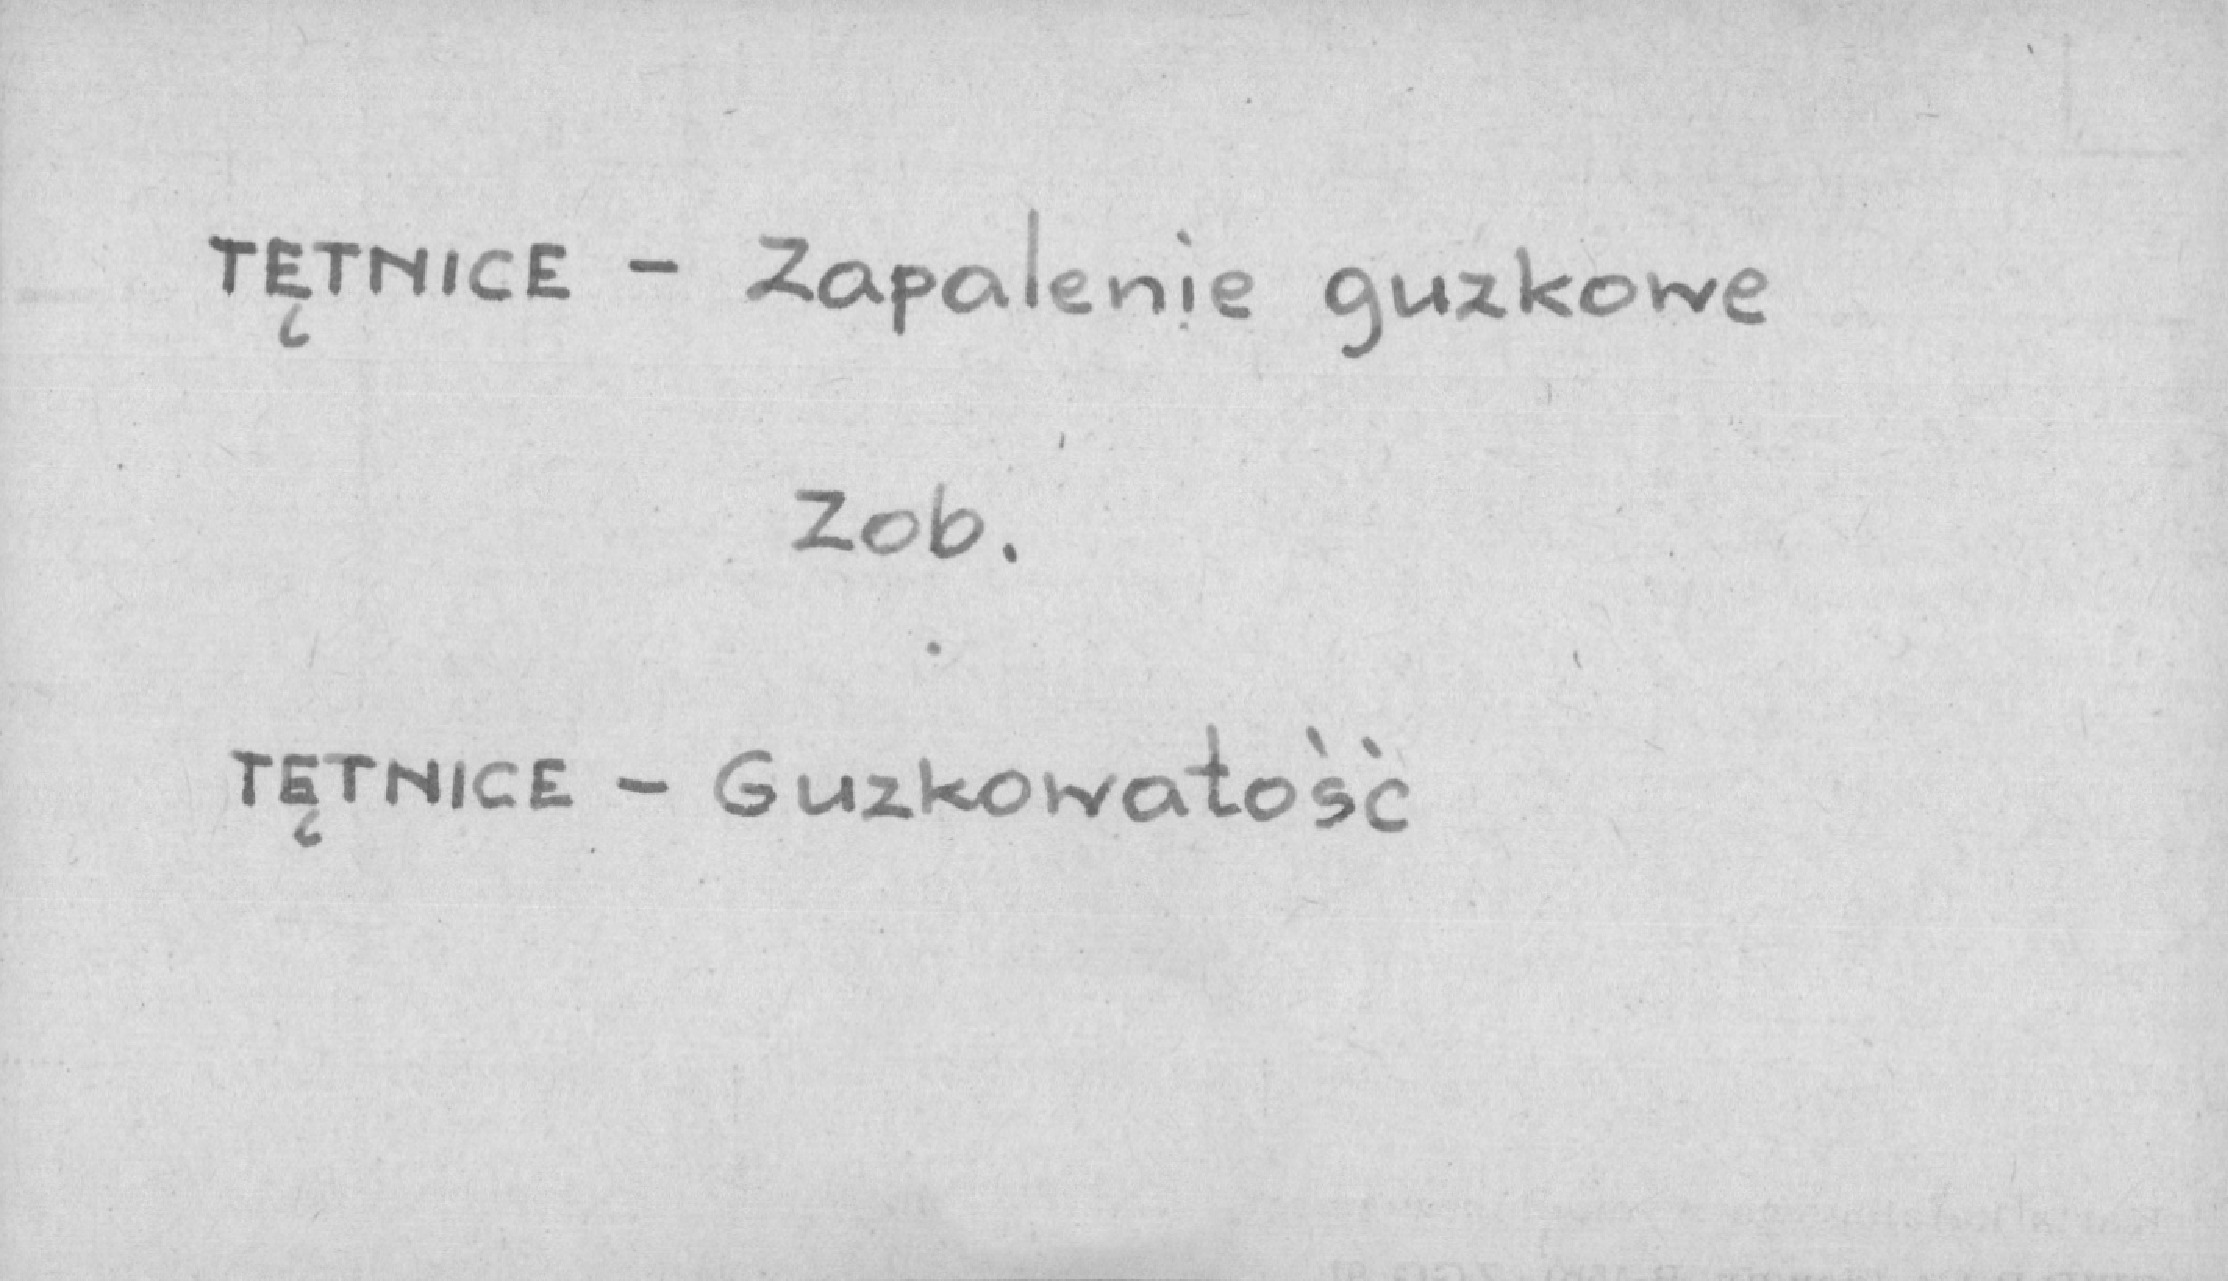 TĘTNICE - Zapalenie guzkowe
Zob.
TĘTNICE - Guzkowatość